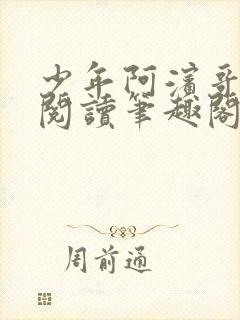 少年阿濱哥
閱讀筆趣閣
周前通